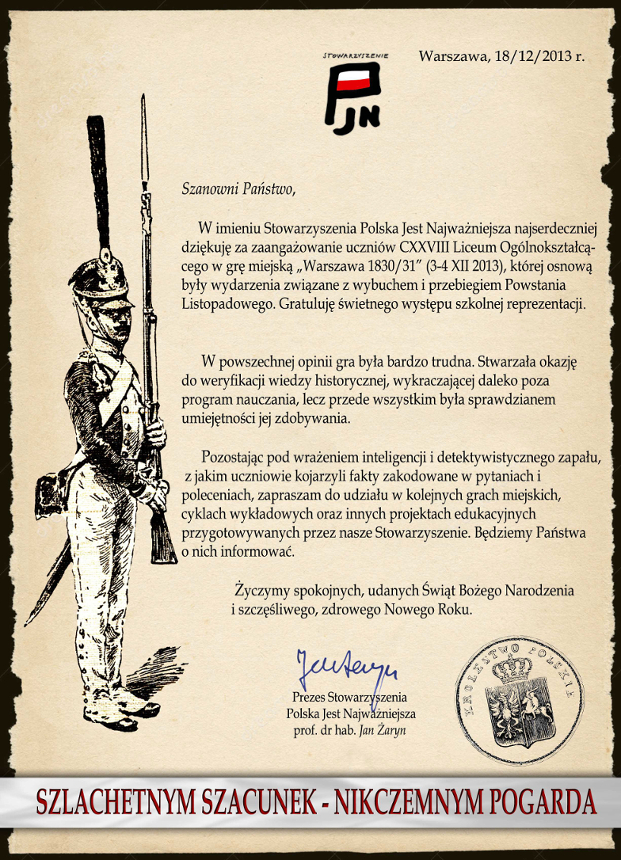 STOWARZYSZENIE
PJN
Warszawa, 18/12/2013 r.
Szanowni Państwo,
W imieniu Stowarzyszenia Polska Jest Najważniejsza najserdeczniej
dziękuję za zaangażowanie uczniów CXXVIII Liceum Ogólnokształcą-
cego w grę miejską „Warszawa 1830/31” (3-4 XII 2013), której osnową
były wydarzenia związane z wybuchem i przebiegiem Powstania
Listopadowego. Gratuluję świetnego występu szkolnej reprezentacji.
W powszechnej opinii gra była bardzo trudna. Stwarzała okazję
do weryfikacji wiedzy historycznej, wykraczającej daleko poza
program nauczania, lecz przede wszystkim była sprawdzianem
umiejętności jej zdobywania.
Pozostając pod wrażeniem inteligencji i detektywistycznego zapału,
z jakim uczniowie kojarzyli fakty zakodowane w pytaniach i
poleceniach, zapraszam do udziału w kolejnych grach miejskich,
cyklach wykładowych oraz innych projektach edukacyjnych
przygotowywanych przez nasze Stowarzyszenie. Będziemy Państwa
o nich informować.
Życzymy spokojnych, udanych Świąt Bożego Narodzenia
i szczęśliwego, zdrowego Nowego Roku.
Prezes Stowarzyszenia
Polska Jest Najważniejsza
prof. dr hab. Jan Żaryn
KRÓLESTWO POLSKIE
SZLACHETNYM SZACUNEK - NIKCZEMNYM POGARDA